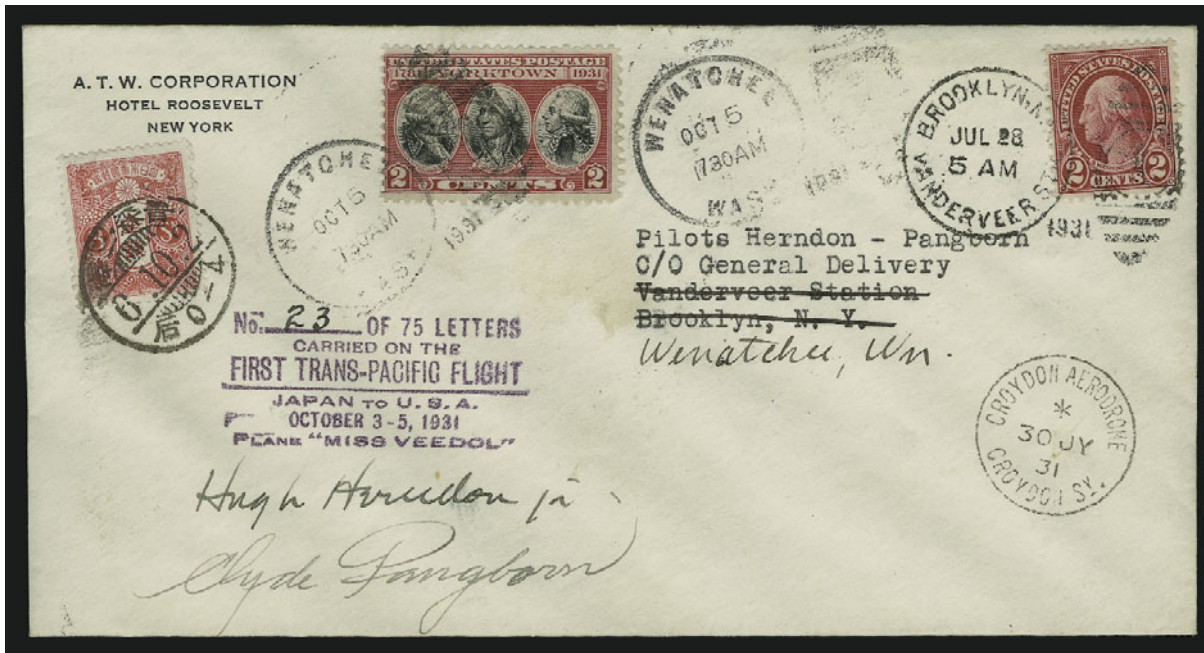 A. T. W. CORPORATION
HOTEL ROOSEVELT
NEW YORK
UNITED STATES POSTAGE
1781 YORKTOWN 1931
2 CENTS 2
WENATCHEE
OCT 5
730AM
WASH
1931
WENATCHEE
OCT 5
730AM
WASH
1931
BROOKLYN, N.
JUL 28
5 AM
VANDERVEER STA
1931
UNITED STATES POSTAGE
2 CENTS 2
6.10.2
Pilots Herndon - Pangborn
C/O General Delivery
Vanderveer Station
Brooklyn, N. Y.
Wenatchee, Wn.
No. 23 OF 75 LETTERS
CARRIED ON THE
FIRST TRANS-PACIFIC FLIGHT
JAPAN TO U. S. A.
OCTOBER 3-5, 1931
PLANE "MISS VEEDOL"
CROYDON AERODROME
*
30 JY
31
CROYDON SY.
Hugh Herndon jr
Clyde Pangborn